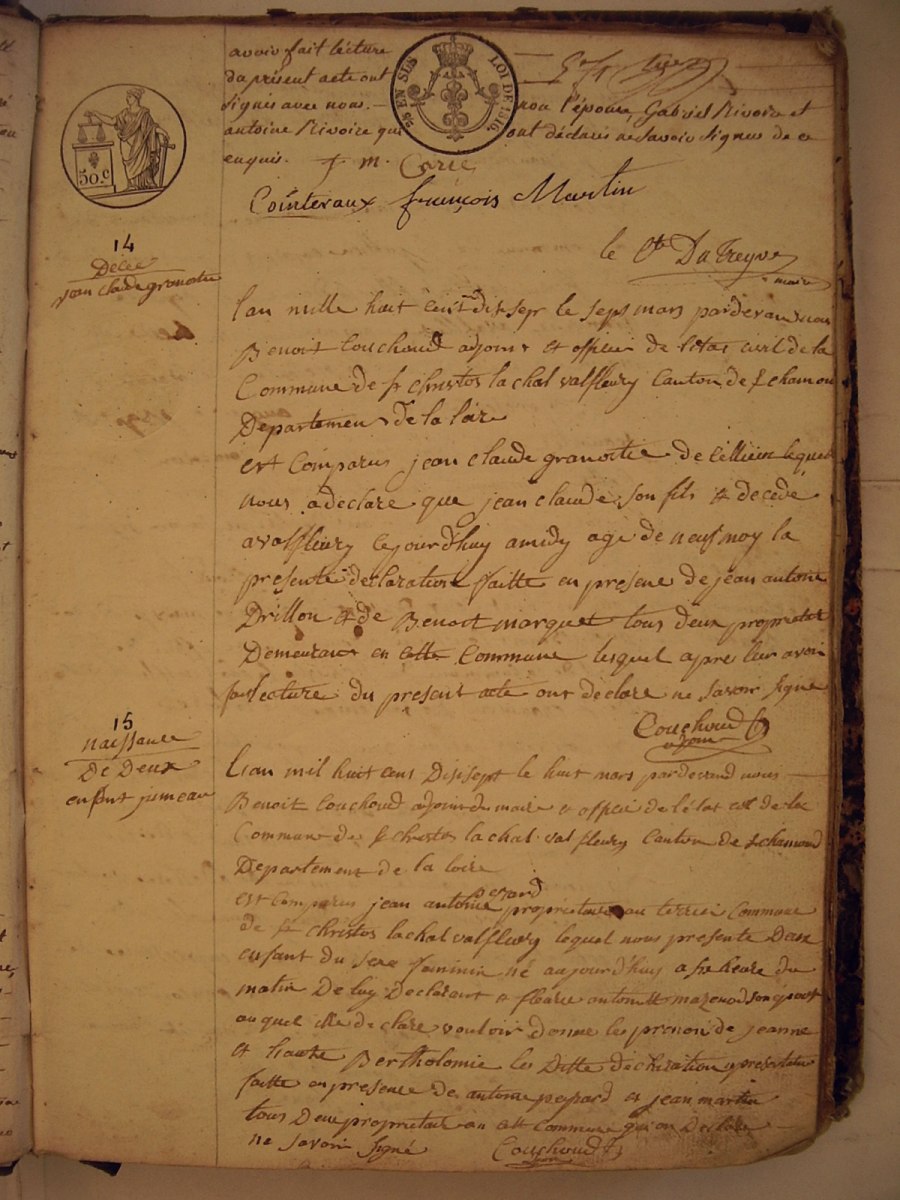 avoir fait lecture
du présent acte ont
signés avec nous.— non l'épouse, Gabriel Rivoire et
antoine Rivoire qui ont déclarés ne savoir signer de ce
enquis. J. m. Carre
EN SUS LOI DE 1816.
50.c
Courteraux françois Martin
le Cte DuTreyve
maire
14
Décé
jean claude granotie
l'an mille huit cent dix sepr le sept mars pardevant nous
Benoit Couchoud adjoint et officier de l'etat civil de la
Commune de st christos lachal valfleury Canton de st chamon
Departement de la loire
est Comparus jean claude granotie de Cellieu lequel
nous a declare que jean claude son fils et decede
a valfleury cejourd'huy a midy age de neuf moy la
presente declaration faitte en presene de jean antoine
Drillon et de Benoit marquet tous deux proprietair
Demeurant en cette Commune lesquel apre leur avoir
fait lecture du present acte ont declare ne savoir signe
Couchoud
adjoin
15
naissance
De Deux
enfant jumeau
L'an mil huit cens Disisept le huit mars pardevend nous
Benoit Couchoud adjoin du maire et officié de l'état cil de la
Commune de st christos lachal valfleury Canton de st chamond
Departement de la loire
est comparus jean antoine pezard proprietaire au terrier Commune
de st christos lachal valfleury lequel nous presente Deux
enfant du sexe faminin né aujourd'huy a six heure du
matin De luy Declarant et antoinette mazenod son epouse
auquel ille declare vouloir donne les prenon de jeanne
et Bertholomie les Ditte declaration et presentation
faitte en presence de antoine pezard et jean martin
tous Deux proprietaire en cette Commune qui on Declare
ne savoir signé Couchoud
adjoin